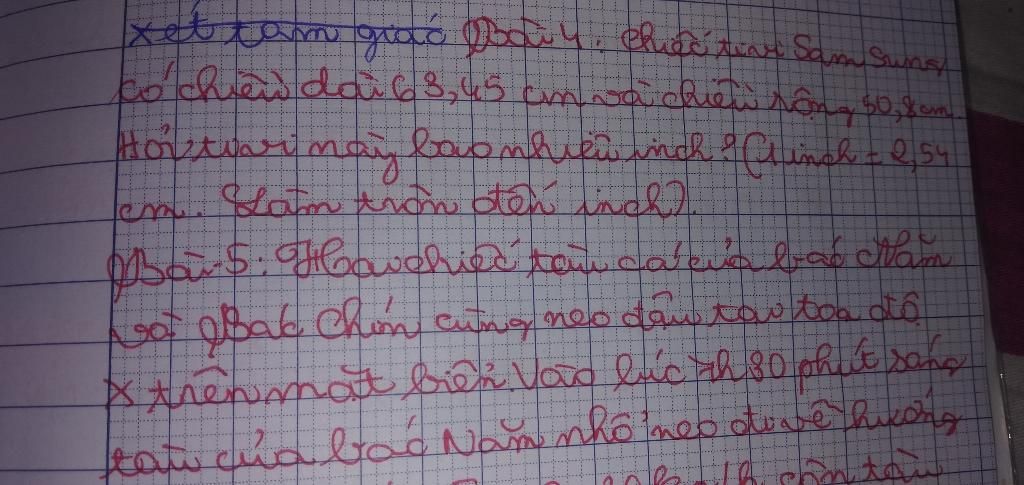 xét tam giác Bài 4. Chiếc tivi Sam Sung
có chiều dài 63,45 cm và chiều rộng 50,8 cm.
Hỏi tivi này bao nhiêu inch? (1 inch = 2,54
cm. Làm tròn đến inch).
Bài 5: Hai chiếc tàu cá của bác Năm
và Bác Chín cùng neo đậu tại tọa độ
X trên mặt biển. Vào lúc 7h30 phút sáng
tàu của bác Năm nhổ neo đi về hướng